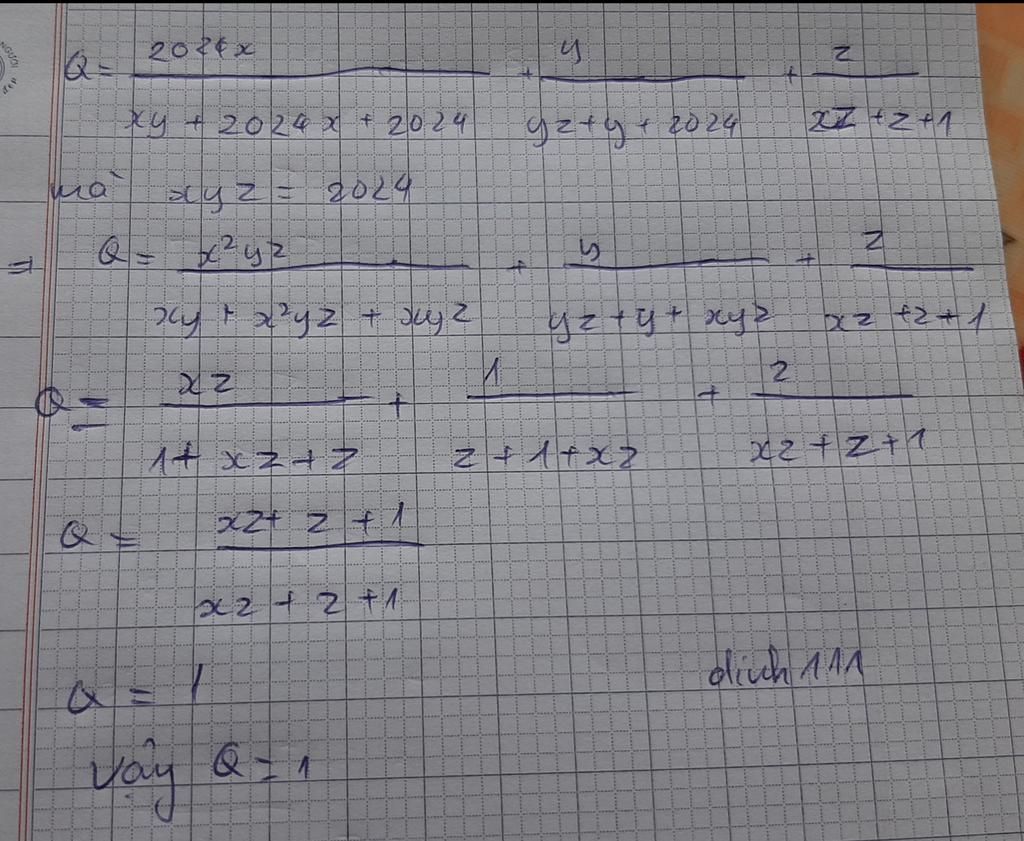 Q = 2024x / (xy + 2024x + 2024) + y / (yz + y + 2024) + z / (xz + z + 1)
mà xyz = 2024
⇒ Q = x²yz / (xy + x²yz + xyz) + y / (yz + y + xyz) + z / (xz + z + 1)
Q = xz / (1 + xz + z) + 1 / (z + 1 + xz) + z / (xz + z + 1)
Q = (xz + z + 1) / (xz + z + 1)
Q = 1
dinh111
Vậy Q = 1